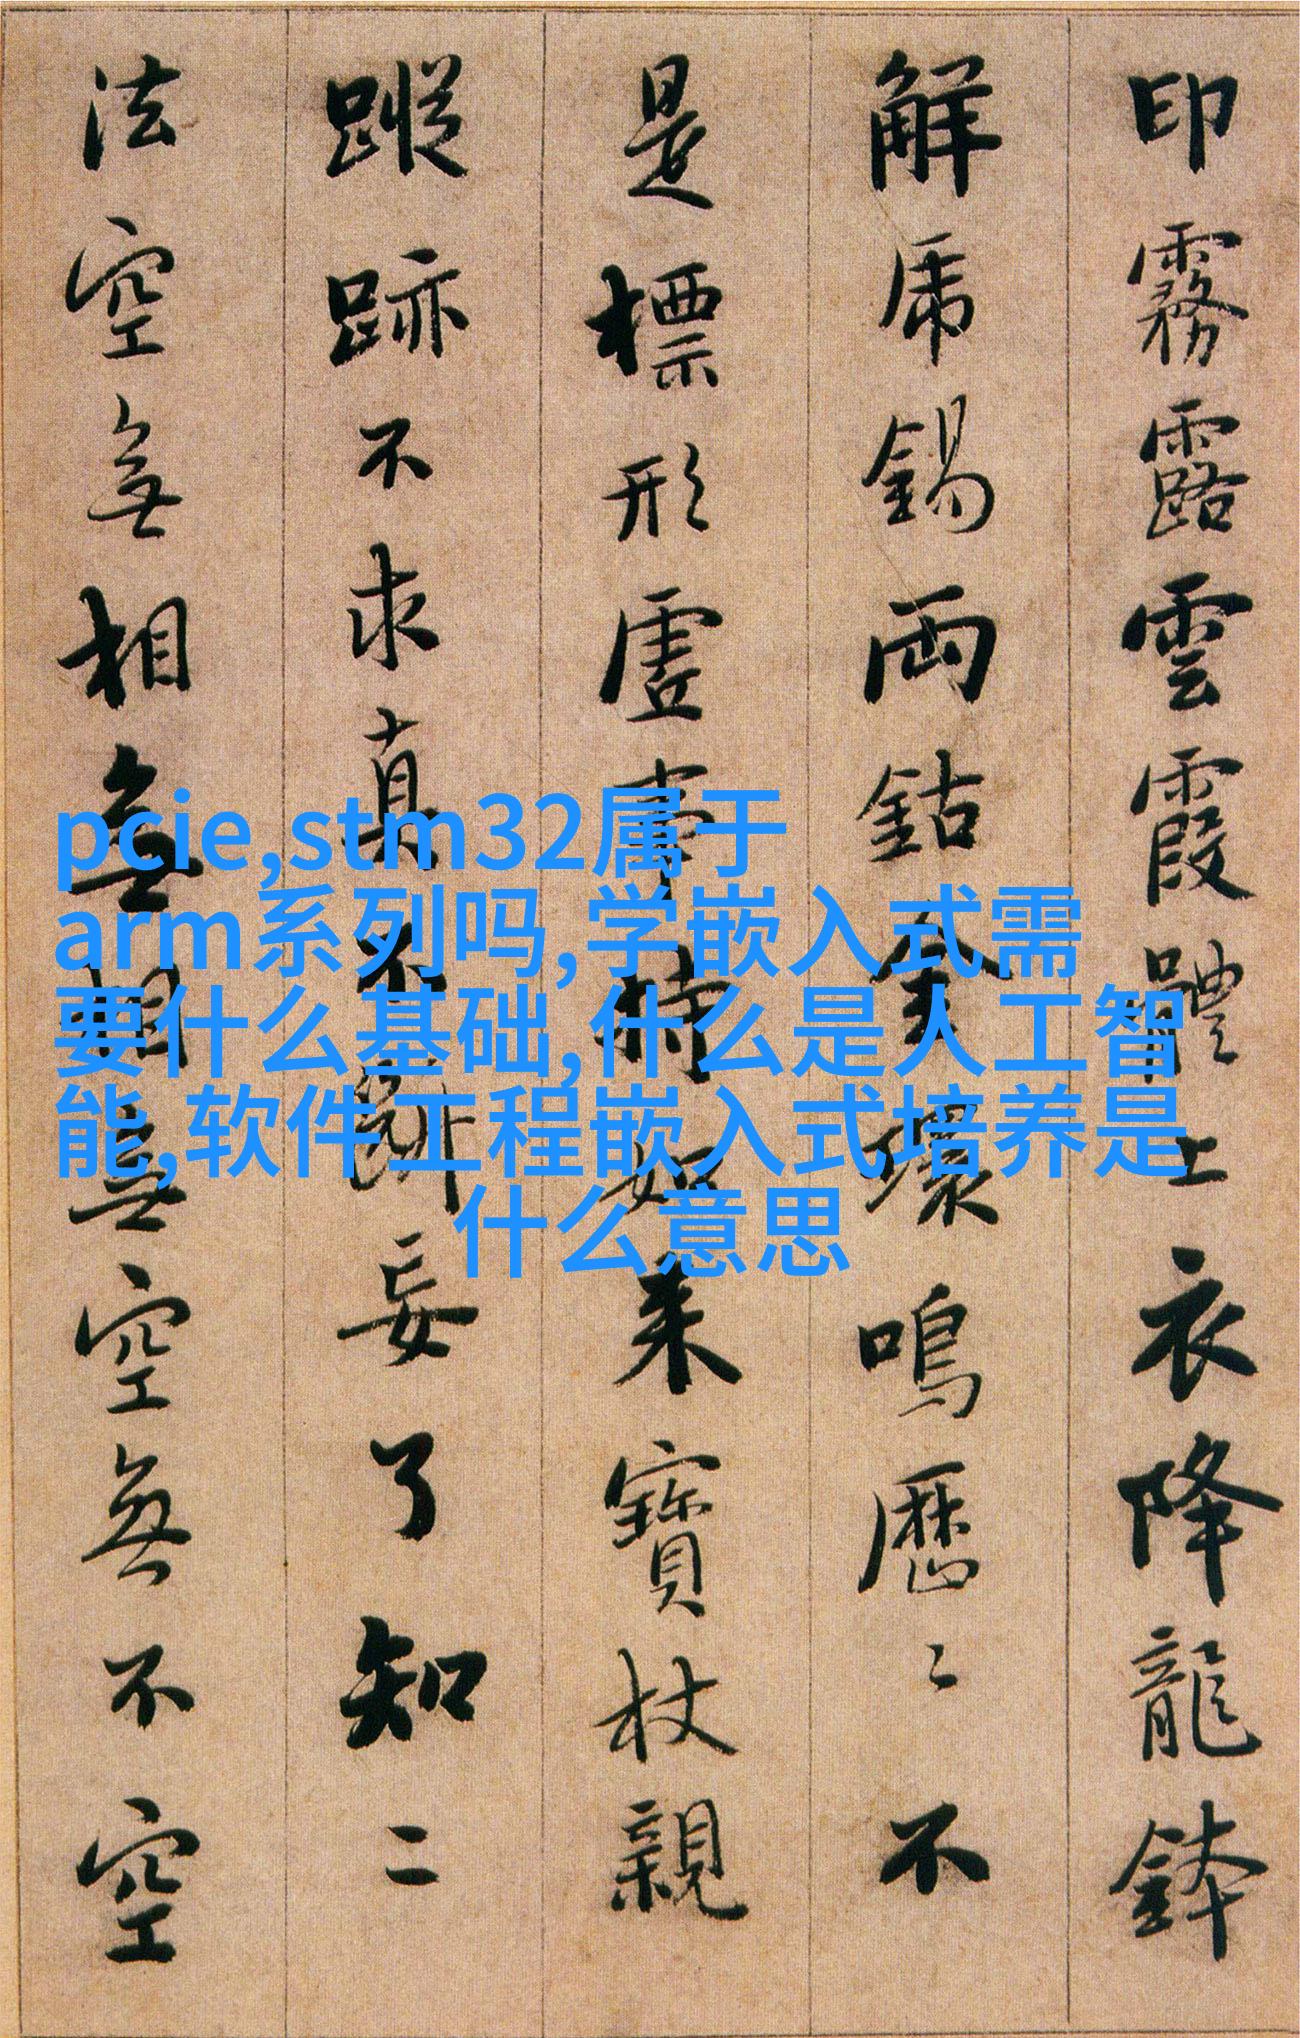 印霧露雲霞體上衣降龍鉢
解虎錫兩鈷金環鳴歷〻不
是標形虛事持如来寶杖親
蹤跡不求真不斷妄了知二
法空無相無相無空無不空
pcie,stm32属于
arm系列吗,学嵌入式需
要什么基础,什么是人工智
能,软件工程嵌入式培养是
什么意思